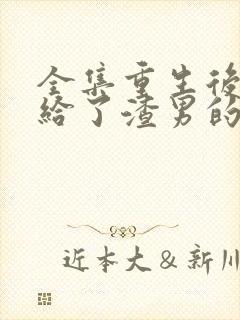 全集重生後
給了渣男的
近本大&新川